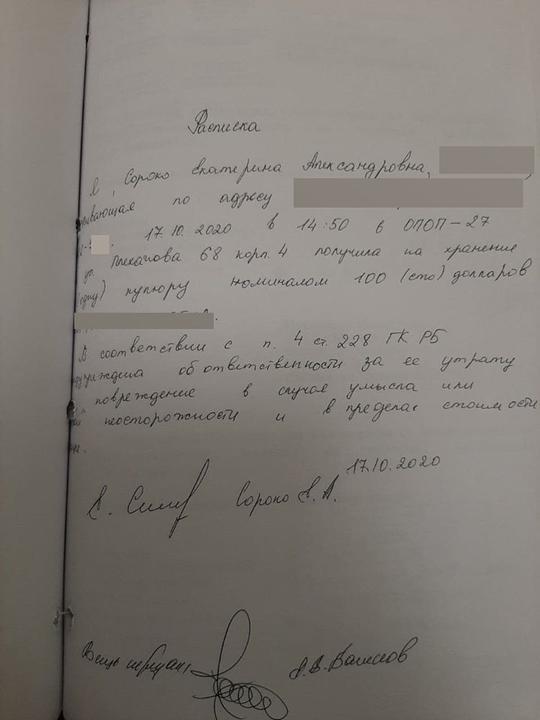 Расписка
Я, Сороко Екатерина Александровна,
живающая по адресу
17.10.2020 в 14:50 в ОПОП-27
ул. Плеханова 68 корп. 4 получила на хранение
одну) купюру номиналом 100 (сто) долларов
В соответствии с п. 4 ст. 228 ГК РБ
упреждена об ответственности за ее утрату
повреждение в случае умысла или
неосторожности и в пределах стоимости
17.10.2020
Сороко Е. А.
Вещь передал